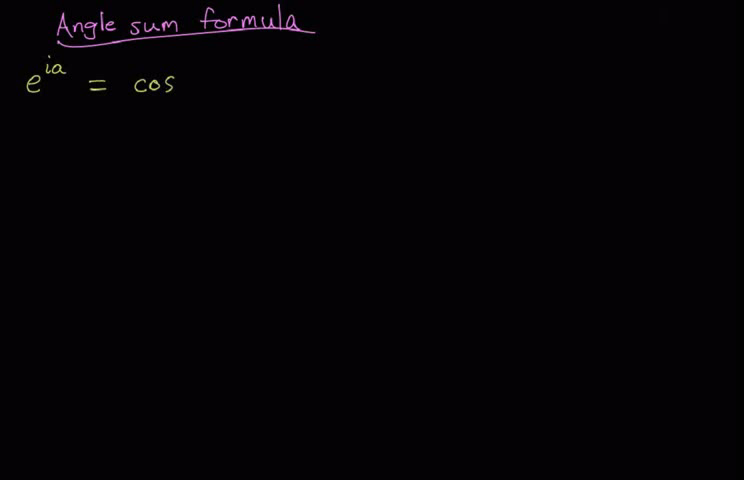 Angle sum formula
e^{ia} = cos